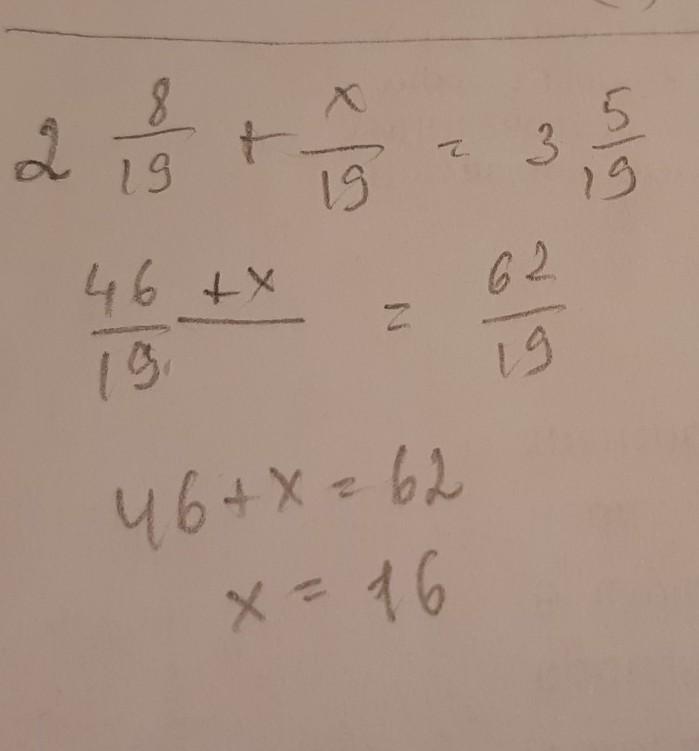 2 8/19 + x/19 = 3 5/19
46+x/19 = 62/19
46+x=62
x = 16